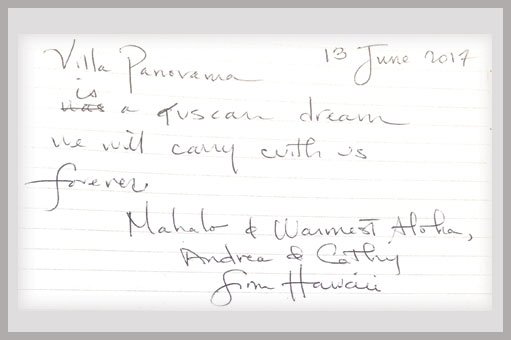 Villa Panorama 13 June 2017
is
was a Tuscan dream
we will carry with us
forever.
Mahalo & Warmest Aloha,
Andrea & Cathy
from Hawaii